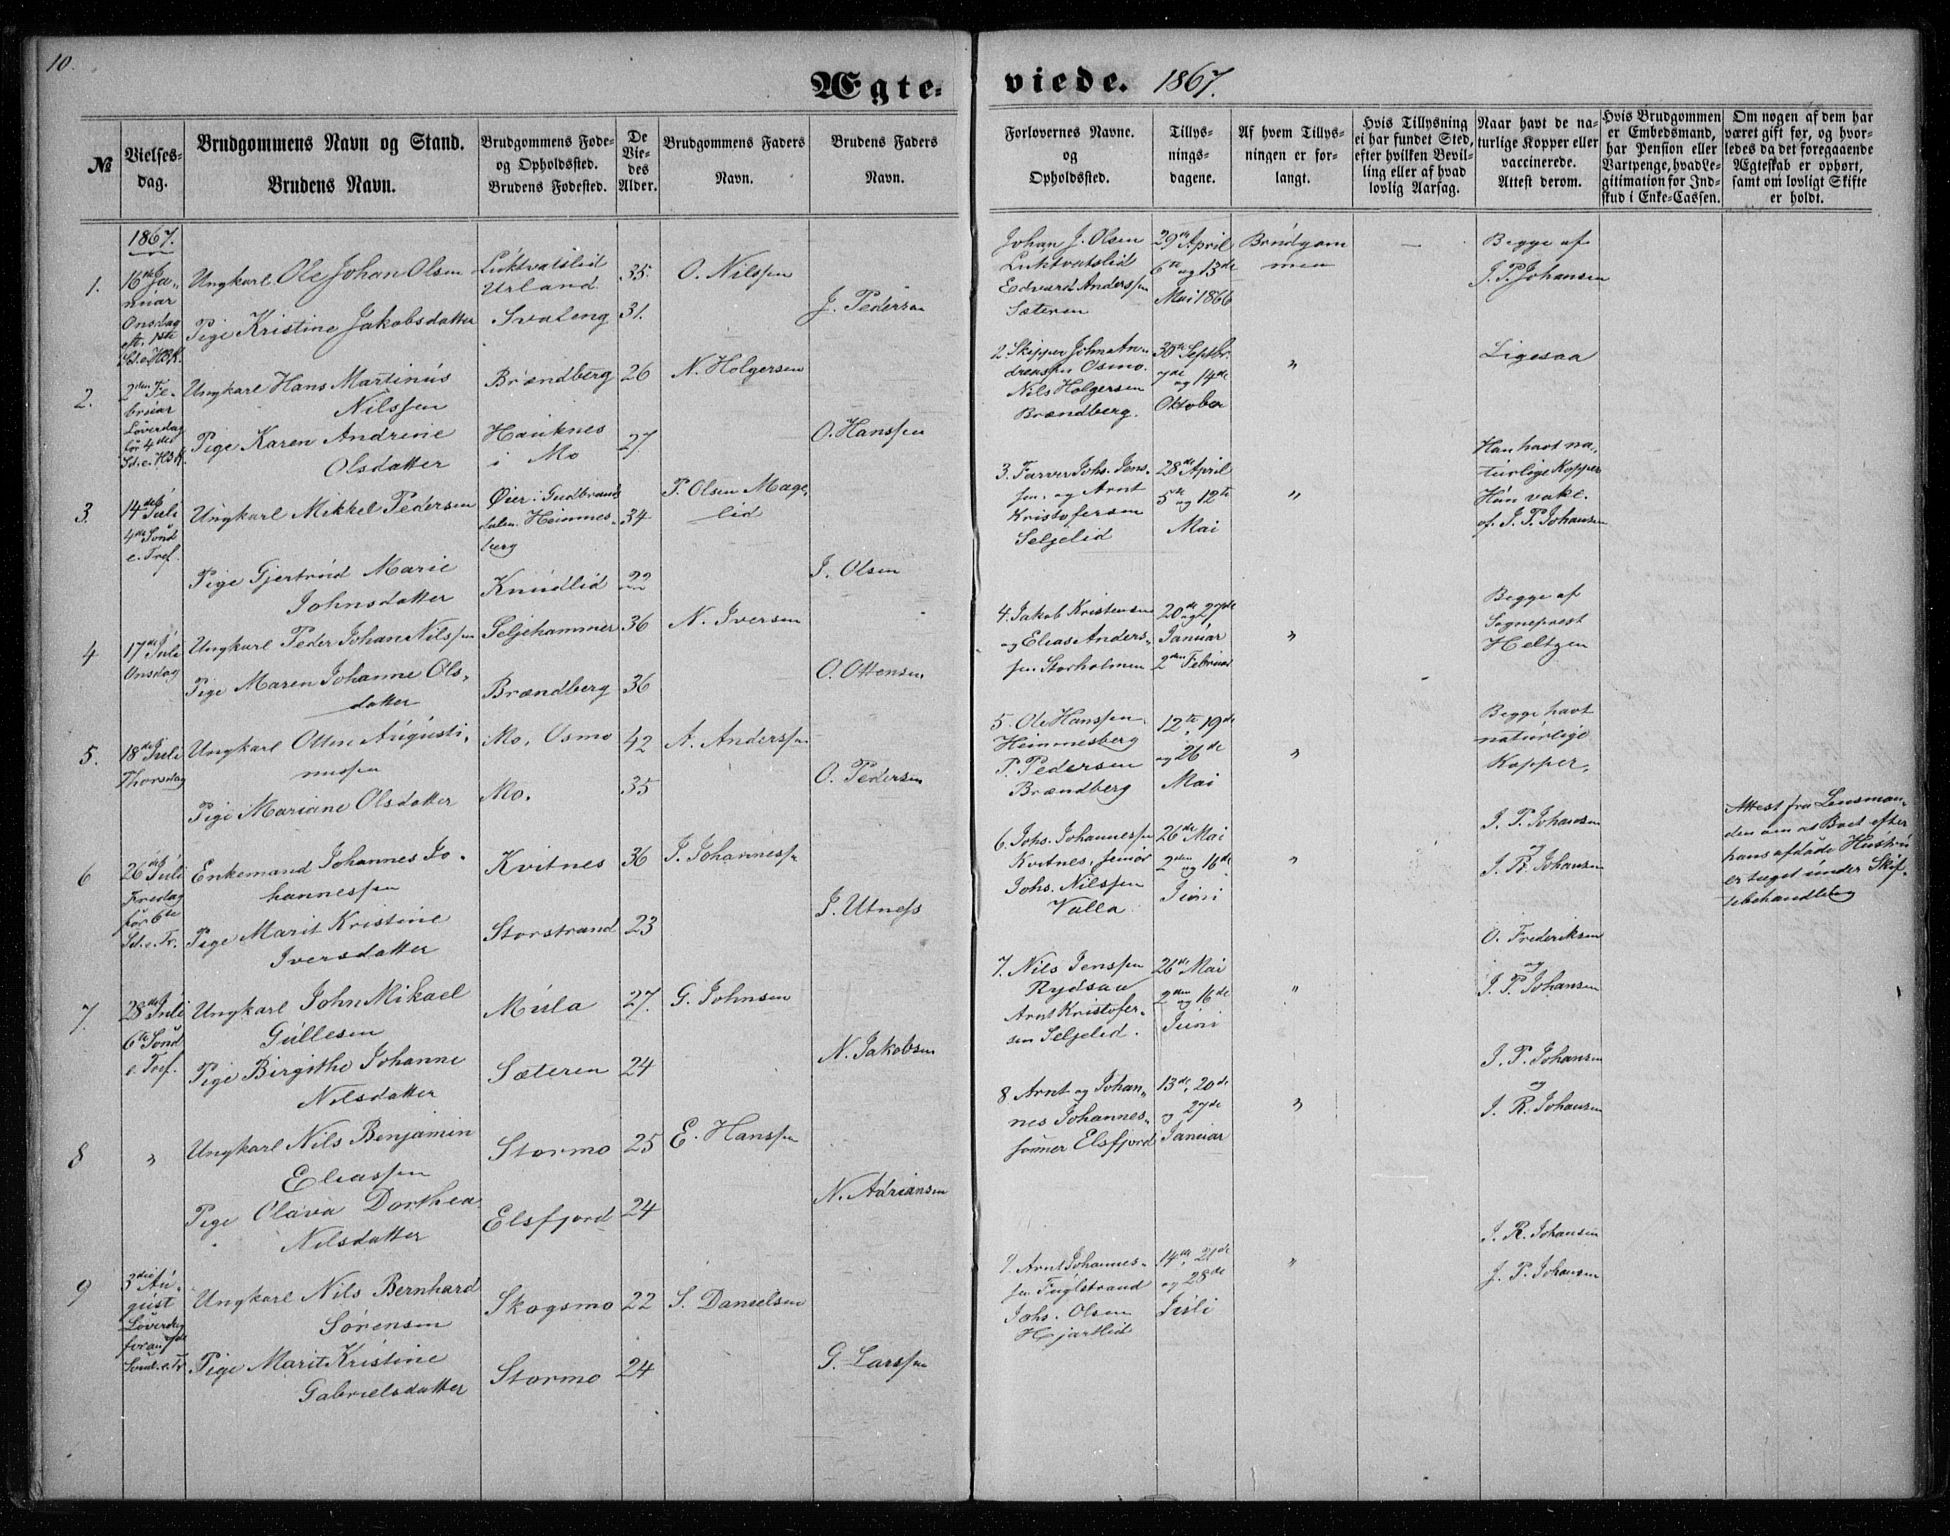 10.
Ægte-
№
Vielses-
dag.
Brudgommens Navn og Stand.
Brudens Navn.
Brudgommens Føde-
og Opholdssted.
Brudens Fødested.
De
Vie-
des
Alder.
Brudgommens Faders
Navn.
Brudens Faders
Navn.
1867.
1.
16de Ja-
nuar
Onsdag
eft. 1ste
Sd. e. H3K.
Ungkarl Ole Johan Olsen
Luktvatslid
Urland
35.
O. Nilssen
Pige Kristine Jakobsdatter
Svaleng
31.
J. Pedersen
2.
2den Fe-
bruar
Løverdag
før 4de
Sd. e. H3K
Ungkarl Hans Martinus
Nilssen
Brændberg
26
N. Holgersen
Pige Karen Andrine
Olsdatter
Hauknes
i Mo
27
O. Hanssen
3.
14de Juli
4de Sønd
e. Tref.
Ungkarl Mikkel Pedersen
Øier i Gudbrands
dalen. Heimmes-
berg
34
P. Olsen Mage-
lid
Pige Gjertrud Marie
Johnsdatter
Knudlid
22
J. Olsen
4
17de Juli
Onsdag
Ungkarl Peder Johan Nilssen
Seljehammer
36
N. Iversen
Pige Maren Johanne Ols-
datter
Brændberg
36
O. Ottensen
5.
18de Juli
Thorsdag
Ungkarl Otten Augusti-
nussen
Mo, Osmo
42
A. Anderssen
Pige Mariane Olsdatter
Mo.
35
O. Pedersen
6
26de Juli
Fredag
før 6te
Sd. e. Tr.
Enkemand Johannes Jo-
hannessen
Kvitnes
36
J. Johannessen
Pige Marit Kristine
Iversdatter
Storstrand
23
I. Utness
7.
28de Juli
6te Sønd
e. Tref.
Ungkarl John Mikael
Gullesen
Mula
27.
G. Johnsen
Pige Birgithe Johanne
Nilsdatter
Sæteren
24
N. Jakobsen
8
"
Ungkarl Nils Benjamin
Eliassen
Stormo
25
E. Hanssen
Pige Olava Dorthea
Nilsdatter
Elsfjord
24
N. Adriansen
9
3die Au-
gust
Løverdag
foran 7de
Sønd. e. Tr
Ungkarl Nils Bernhard
Sørensen
Skogsmo
22
S. Danielsen
Pige Marit Kristine
Gabrielsdatter
Stormo
24
G. Larssen
viede. 1867.
Forlovernes Navne.
og
Opholdssted.
Tillys-
nings-
dagene.
Af hvem Tillys-
ningen er for-
langt.
Hvis Tillysning
ei har fundet Sted,
efter hvilken Bevil-
ling eller af hvad
lovlig Aarsag.
Naar havt de na-
turlige Kopper eller
vaccinerede.
Attest derom.
Hvis Brudgommen
er Embedsmand,
har Pension eller
Vartpenge, hvad Le-
gitimation for Ind-
skud i Enke-Cassen.
Om nogen af dem har
været gift før, og hvor-
ledes da det foregaaende
Ægteskab er ophørt,
samt om lovligt Skifte
er holdt.
Johan J. Olsen
Luktvatslid
Edvard Anderssen
Sæteren
29de April
6te og 13de
Mai 1866
Brudgom
men
—
Begge af
J. P. Johansen
2. Skipper John An-
dreassen Osmo.
Nils Holgersen
Brændberg.
30te Septbr.
7de og 14de
Oktober
"
Ligesaa
3. Farver Johs. Jens-
sen og Arnt
Kristofersen
Seljelid
28de April
5te og 12te
Mai
"
Han havt na-
turlige Kopper
Hun vakc.
af J. P. Johansen
4. Jakob Kristensen
og Elias Anders-
sen Storholmen
20de og 27de
Januar
2den Februar
"
Begge af
Sogneprest
Heltzen
5. Ole Hanssen
Heimmesberg
P. Pedersen
Brændberg
12te, 19de
og 26de
Mai
"
Begge havt
naturlige
Kopper,
6. Johs. Johannessen
Kvitnes, senior
Johs. Nilssen
Valla
26de Mai
2den og 16de
Juni
"
J. P. Johansen
og
J. R. Johansen
Attest fra Lensman-
den om at Boet efter
hans afdøde Hustru
er taget under Skif-
tebehandling
7. Nils Jenssen
Rydsaa
Arnt Kristofer-
sen Seljelid.
26de Mai
2den og 16de
Juni
"
O. Frederiksen
og
J. P. Johansen
8 Arnt og Johan-
nes Johannes-
sønner Elsfjord
13de, 20de
og 27de
Januar
"
J. P. Johansen
og
J. R. Johansen
9. Arnt Johannes-
sen Fuglstrand
Johs. Olsen
Hjartlid
14de, 21de
og 28de
Juli
"
J. R. Johansen
J. P. Johansen